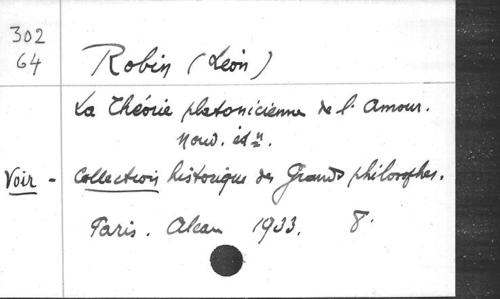 302
64
Robin (Léon)
La Théorie platonicienne de l'Amour.
Nouv. édn.
Voir - Collections historique des Grands philosophes.
Paris. Alcan 1933. 8°